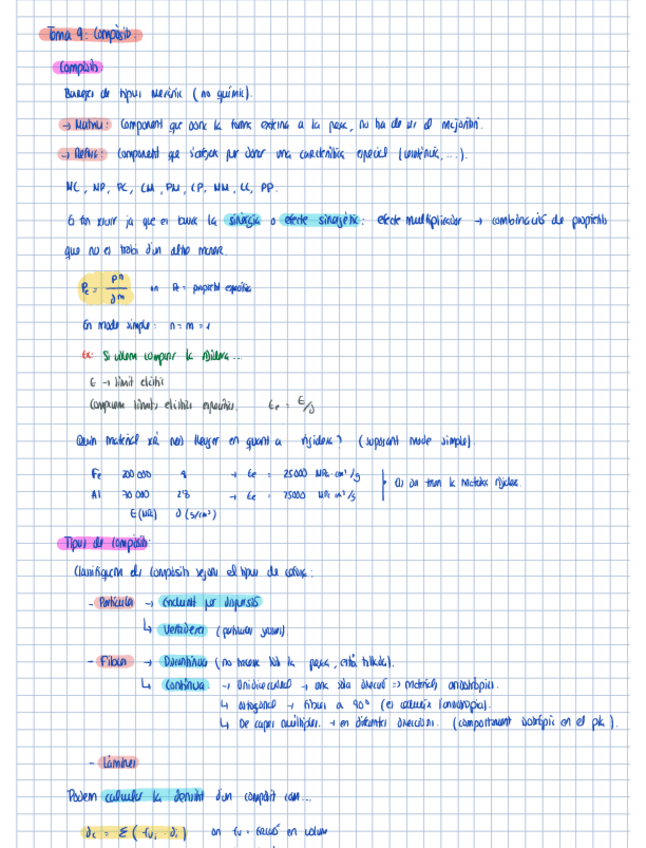 Tema 9: Compòsits.
Compòsits
Barreges de tipus mecànic (no químic).
→ Matriu: Component que dona la forma externa a la peça, no ha de ser el majoritari.
→ Reforç: Component que s'afegeix per donar una característica especial (resistència, ...).
MC, MP, PC, CM, PM, CP, MM, CC, PP.
Es fan servir ja que es busca la sinèrgia o efecte sinergètic: efecte multiplicador → combinació de propietats
que no es troba d'un altre manera.
Pe = Pⁿ / ∂ᵐ on Pe = propietat específica
En mode simple: n = m = 1
Ex: Si volem comparar la rigidesa...
E → límit elàstic
Comparem límits elàstics específics. Ee = E/∂
Quin material serà més lleuger en quant a rigidesa? (suposant mode simple)
Fe 200 000 8 → Ee = 25000 MPa·cm³/g
Al 70 000 2,8 → Ee = 25000 MPa·cm³/g
E (MPa) ∂ (g/cm³)
Tipus de compòsits:
Classifiquem els compòsits segons el tipus de reforç:
- Partícula → Enduriment per dispersió
↳ Vertaderes (partícules grans).
- Fibres → Discontínues (no tota la peça, està tallada).
↳ Contínua: → Unidireccional → una sola direcció => material anisotròpic.
↳ ortogonal → Fibres a 90° (es redueix l'anisotropia).
↳ De capes múltiples. → en diferents direccions. (comportament isotròpic en el pla).
- Làmines
Podem calcular la densitat d'un compòsit com...
∂c = Σ (fvᵢ · ∂ᵢ) on fv = fracció en volum